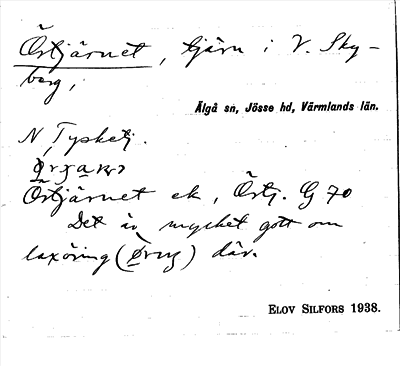 Örtjärnet, tjärn i V. Sky-
berg,
Älgå sn, Jösse hd, Värmlands län.
N Tysketj.
Örtjärnet ek, Örtj. G 70
Det är mycket gott om
laxöring (Öring) där.
ELOV SILFORS 1938.